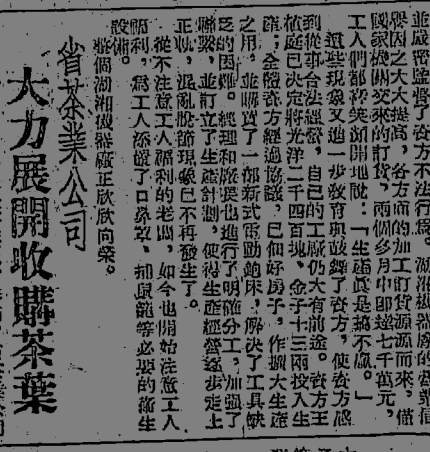 並嚴密監督了資方不法行爲。湖湘機器廠的營業信
譽因之大大提高，各方面的加工訂貨源源而來，僅
國家機關交來的訂貨，兩個多月中即達七千萬元，
工人們都粲笑顔開地說：「生產眞是搞不贏。」
這些現象又進一步教育與鼓舞了資方，使資方感
到從事合法經營，自己的工廠仍大有前途。資方王
植庭已決定將光洋二千四百塊，金子十三兩投入生
產；全體資方經過協議，已佃好房子，作擴大生產
之用，並購買了一部新式電動鉋床，解決了工具缺
乏的困難。經理和廠長也進行了明確分工，加强了
聯繫，並訂立了生產計劃，使得生產經營逐步走上
正軌，混亂脫節現象已不再發生了。
從不注意工人福利的老闆，如今也開始注意工人
福利，爲工人添置了口鼻罩，捕鼠籠等必要的衞生
設備。
整個湖湘機器廠正欣欣向榮。
省茶業公司
大力展開收購茶葉